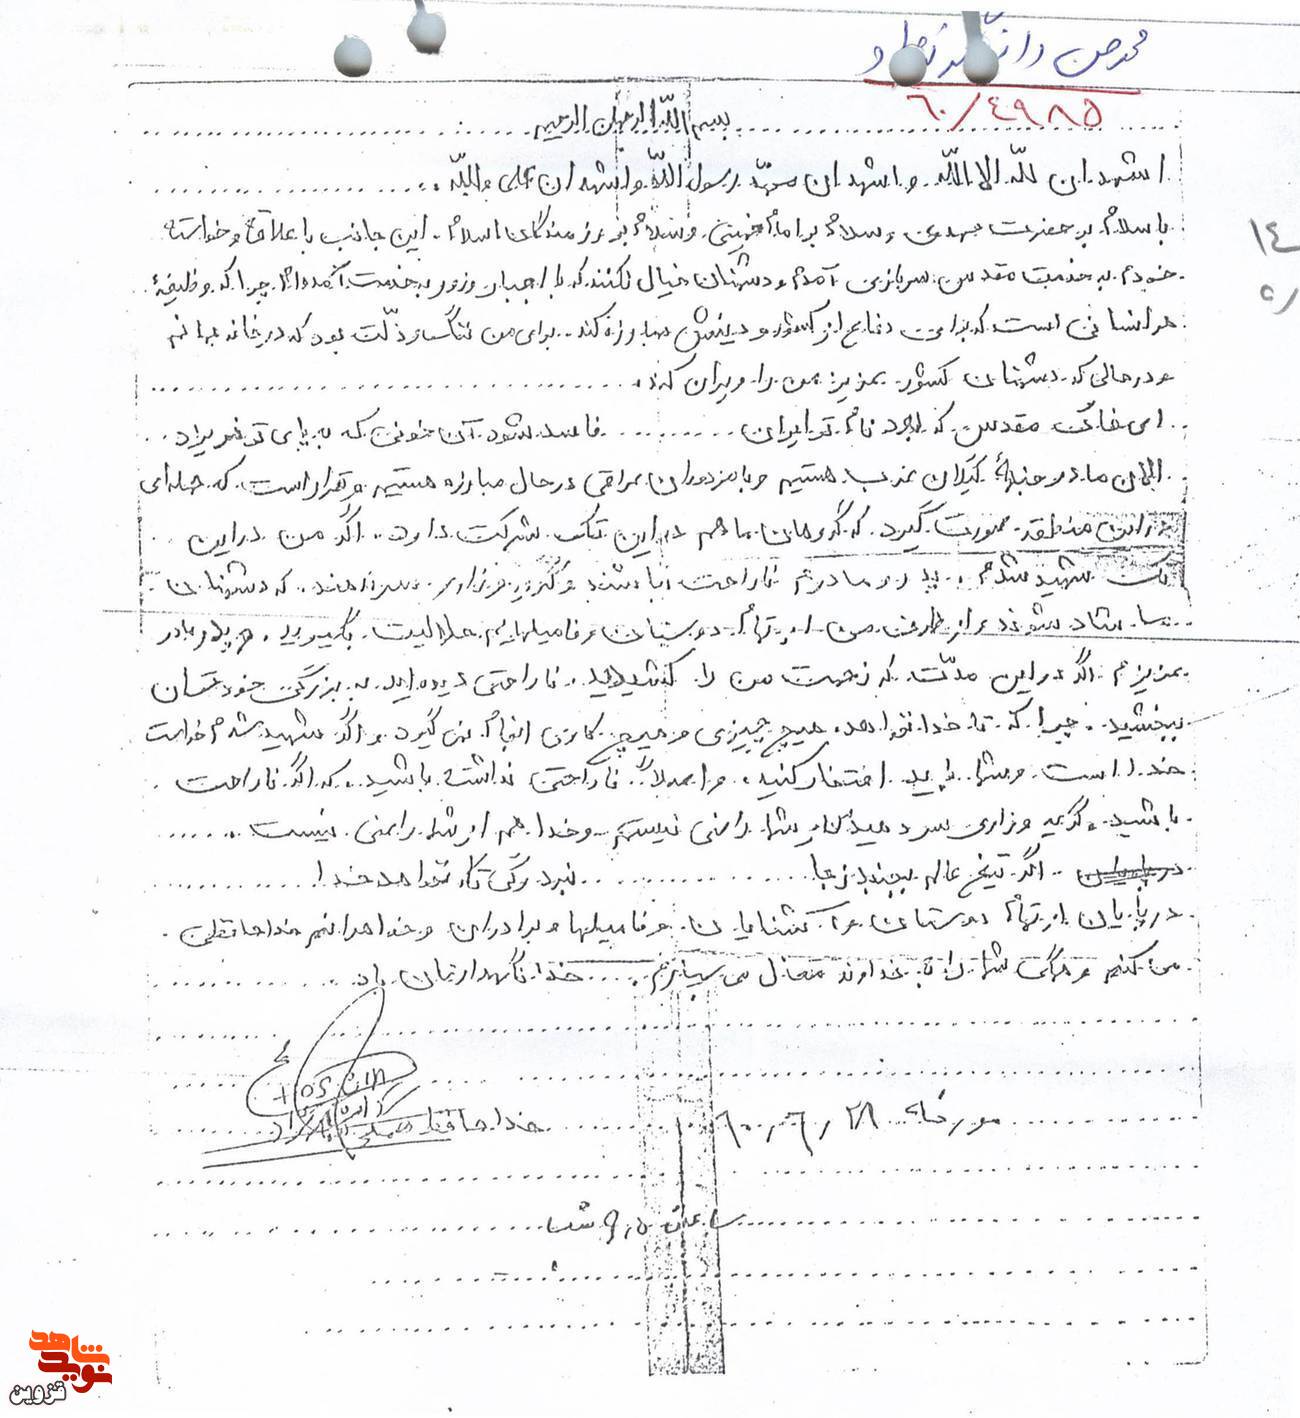 محمدحسن دانش نژاد
٦٠/٤٩٨٥
بسم الله الرحمان الرحیم
اشهد ان لله الا الله و اشهد ان محمد رسول الله و اشهد ان علی ولی الله
با سلام بر حضرت مهدی و سلام بر امام خمینی و سلام بر رزمندگان اسلام. این جانب با علاقه و خواسته
١٤
خودم به خدمت مقدس سربازی آمدم و دشمنان خیال نکنند که با اجبار و زور به خدمت آمده‌ام چرا که وظیفهٔ
٥/
هر انسانی است که برای دفاع از کشور و دینش مبارزه کند. برای من ننگ و ذلت بود که در خانه بمانم
و درحالی که دشمنان کشور عزیز من را ویران کند.
ای خاک مقدس که بود نام تو ایران ........ فاسد شود آن خونی که به پای تو نریزد
الان ما در جبههٔ گیلان غرب هستیم و با مزدوران عراقی در حال مبارزه هستیم و قرار است که حمله‌ای
در این منطقه صورت گیرد که گروهان ما هم در این تک شرکت دارد. اگر من در این
تک شهید شدم، پدر و مادرم ناراحت نباشند و گریه و زاری سر ندهند. که دشمنان
ما شاد شوند و از طرف من از تمام دوستان و فامیلهایم حلالیت بگیرید. و پدر و مادر
عزیزم اگر در این مدت که زحمت من را کشیدید، ناراحتی دیده‌اید به بزرگی خودتان
ببخشید. چرا که تا خدا نخواهد، هیچ چیزی و هیچ کاری انجام نمی گیرد و اگر شهید شدم خواست
خدا است و شما باید افتخار کنید، و اصلاً ناراحتی نداشته باشید. که اگر ناراحت
باشید و گریه و زاری سر دهید از شما راضی نیستم و خدا هم از شما راضی نیست.
در پایان اگر تیغ عالم بجنبد ز جا ........ نبرد رگی تا نخواهد خدا!
در پایان از تمام دوستان و آشنایان و فامیلها و برادران و خواهرانم خداحافظی
می کنم و همگی شما را به خداوند متعال می سپارم. خدا نگهدارتان باد
مورخه ٦٠/٦/٢٨ خداحافظ همگی
ساعت ٩ شب
شاهد
نوید
قزوین